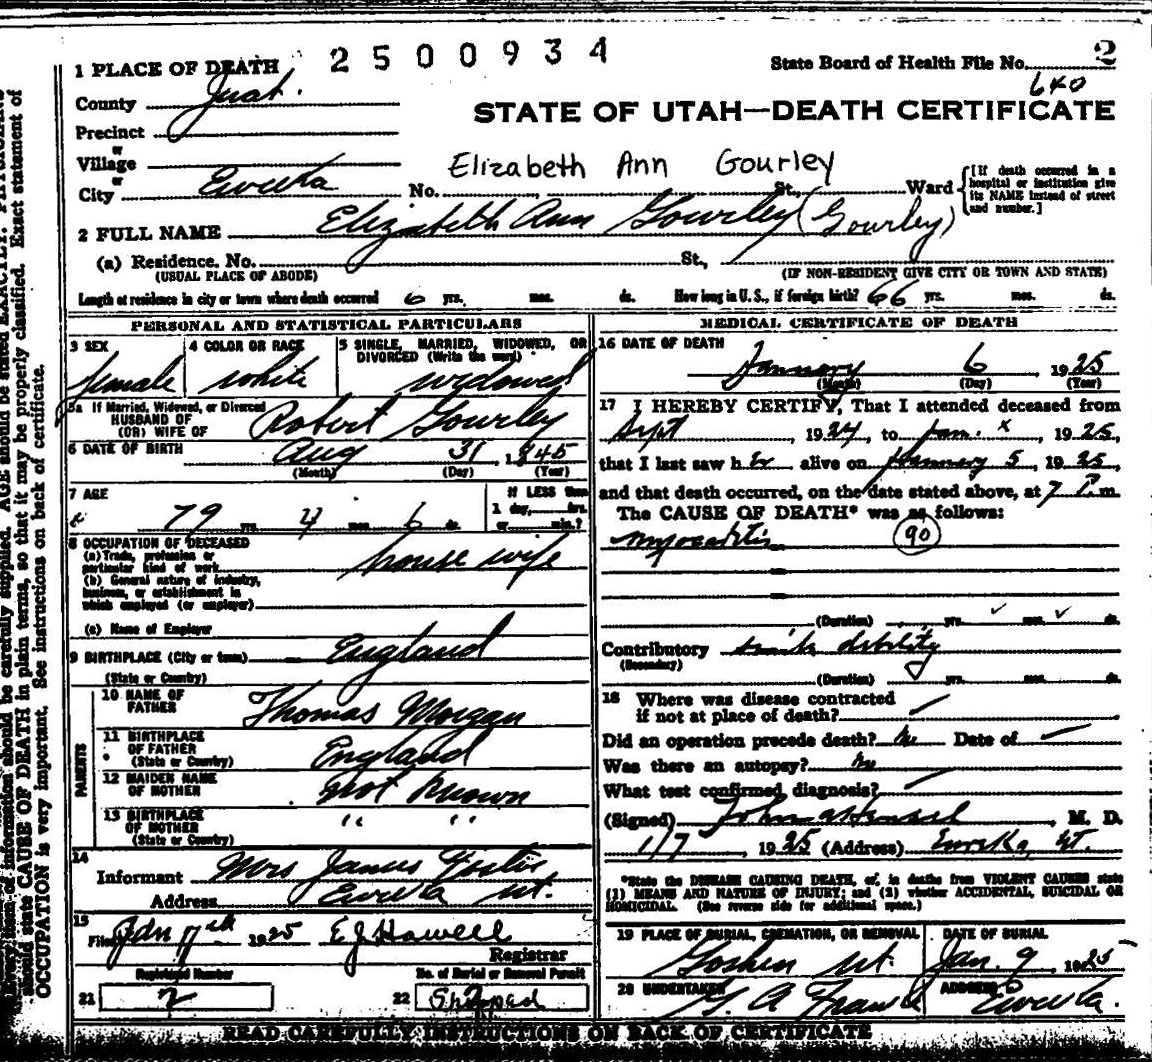 2500934
State Board of Health File No. 2
640
1 PLACE OF DEATH
County Juab.
STATE OF UTAH—DEATH CERTIFICATE
Precinct
or
Village
or
Elizabeth Ann Gourley
City Eureka No. St., Ward
[If death occurred in a hospital or institution give its NAME instead of street and number.]
2 FULL NAME Elizabeth Ann Gourley (Gourley)
(a) Residence. No. St.,
(USUAL PLACE OF ABODE) (IF NON-RESIDENT GIVE CITY OR TOWN AND STATE)
Length of residence in city or town where death occurred 6 yrs. mos. ds. How long in U. S., if foreign birth? 66 yrs. mos. ds.
PERSONAL AND STATISTICAL PARTICULARS
3 SEX 4 COLOR OR RACE 5 SINGLE, MARRIED, WIDOWED, OR DIVORCED (Write the word)
female white widowed
5a If Married, Widowed, or Divorced
HUSBAND OF
(OR) WIFE OF Robert Gourley
6 DATE OF BIRTH Aug 31 1845
(Month) (Day) (Year)
7 AGE If LESS than
79 yrs. 4 mos. 6 ds. 1 day, hrs.
or min.?
8 OCCUPATION OF DECEASED
(a) Trade, profession or
particular kind of work house wife
(b) General nature of industry,
business, or establishment in
which employed (or employer)
(c) Name of Employer
9 BIRTHPLACE (City or town) England
(State or Country)
PARENTS
10 NAME OF
FATHER Thomas Morgan
11 BIRTHPLACE
OF FATHER England
(State or Country)
12 MAIDEN NAME
OF MOTHER Not Known
13 BIRTHPLACE
OF MOTHER " "
(State or Country)
14
Informant Mrs James
Address Eureka Ut.
15
Filed Jan 7th 1925 E J Howell
Registrar
Registered Number No. of Burial or Removal Permit
21 2 22 Shipped
MEDICAL CERTIFICATE OF DEATH
16 DATE OF DEATH
January 6 1925
(Month) (Day) (Year)
17 I HEREBY CERTIFY, That I attended deceased from
Sept, 1924, to Jan. x 1925,
that I last saw her alive on January 5, 1925,
and that death occurred, on the date stated above, at 7 P. m.
The CAUSE OF DEATH* was as follows:
Myocarditis 90
(Duration) yrs. mos. ds.
Contributory senile debility
(Secondary)
(Duration) yrs. mos. ds.
18 Where was disease contracted
if not at place of death?
Did an operation precede death? No Date of
Was there an autopsy? No
What test confirmed diagnosis?
(Signed) John Hensel, M. D.
1/7, 1925 (Address) Eureka, Ut.
*State the DISEASE CAUSING DEATH, or, in deaths from VIOLENT CAUSES state
(1) MEANS AND NATURE OF INJURY; and (2) whether ACCIDENTAL, SUICIDAL OR
HOMICIDAL. (See reverse side for additional space.)
19 PLACE OF BURIAL, CREMATION, OR REMOVAL DATE OF BURIAL
Goshen Ut. Jan. 9 1925
20 UNDERTAKER ADDRESS
Eureka.
READ CAREFULLY INSTRUCTIONS ON BACK OF CERTIFICATE
information should be carefully supplied. AGE should be stated EXACTLY.
should state CAUSE OF DEATH in plain terms, so that it may be properly classified. Exact statement of
OCCUPATION is very important. See instructions on back of certificate.